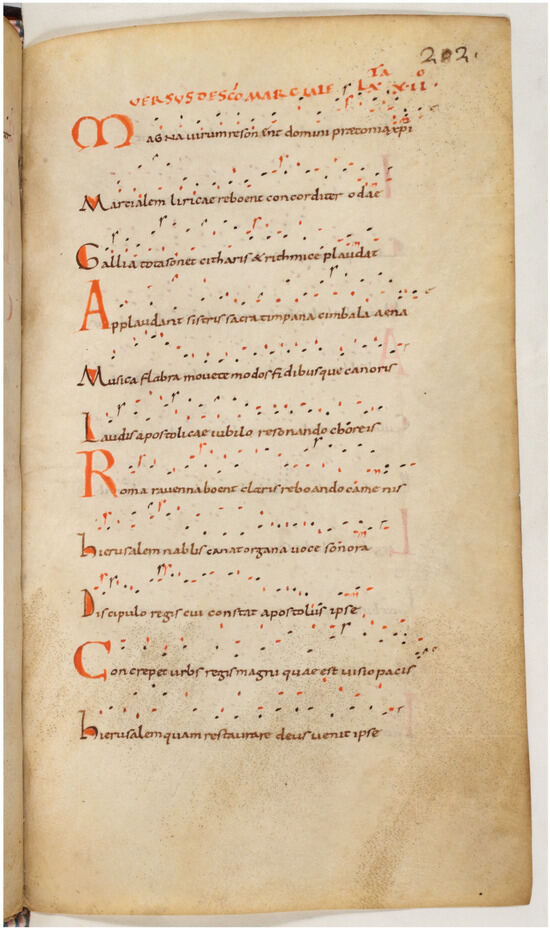 202.
VERSUS DE SCO MARCIALE LXXII
MAGNA virum resonent domini præconia xpi
Martialem liricae reboent concorditer odae
Gallia tota sonet citharis & richmice plaudat
Applaudant sistris sacra timpana cimbala aena
Musica flabra movete modos fidibusque canoris
Laudis apostolicae iubilo resonando choreis
Roma ravenna boent claris reboando camenis
hierusalem nablis canat organa voce sonora
Discipulo regis cui constat apostolus ipse
Concrepet urbs regis magni quae est visio pacis
hierusalem quam restaurare deus venit ipse